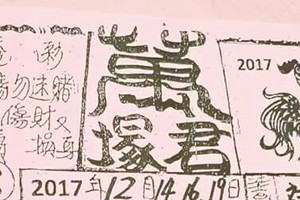 萬
塚君
2017
迷賭
勿
傷財又
損身
2017年12月14.16.19日